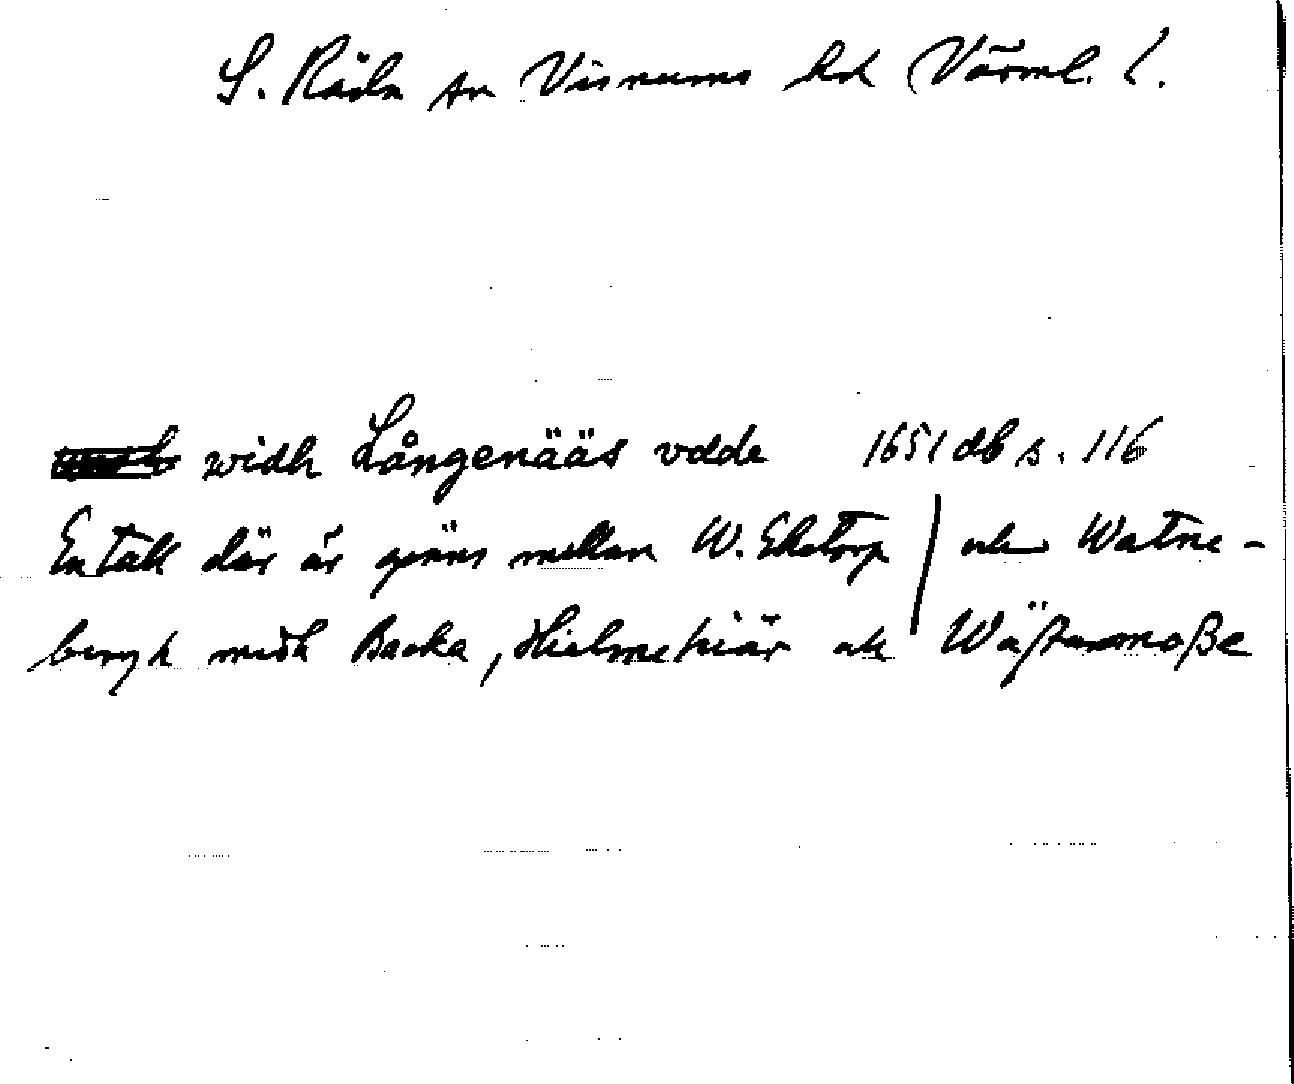 S. Råda sn Visnums hd Värml. l.
widh Långenääs vdde 1651 db s. 116
En tall där är giäns mellan W. Eketorp / och Watne-
bergh medh Backa, Hielmekiär och Wäßtermoße